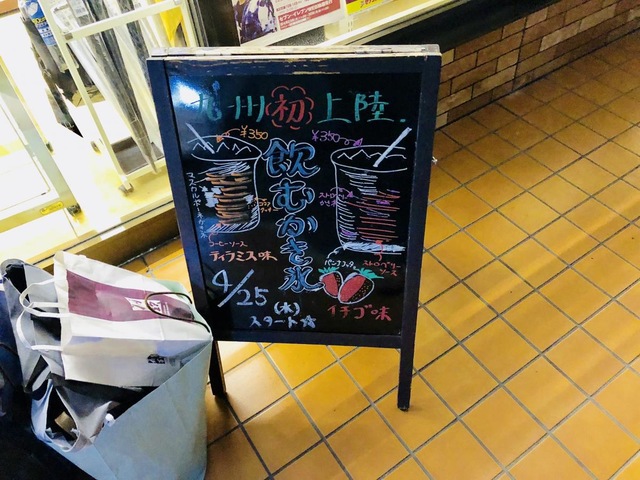 九州初上陸.
¥350
¥350
飲むかき氷
コーヒーソース
ティラミス味
パンナコッタ
ストロベリー
ソース
イチゴ味
4/25
(水)
スタート☆